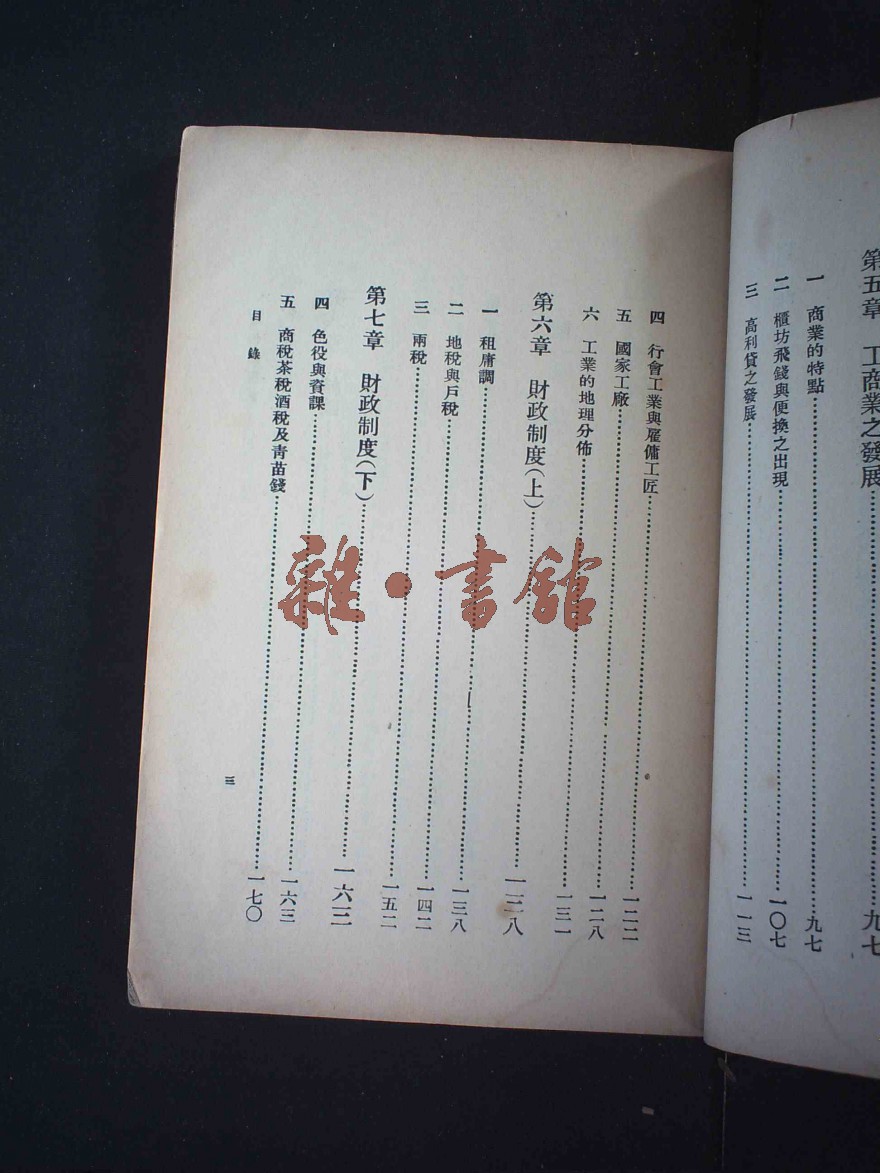 第五章 工商業之發展……九七
一 商業的特點……九七
二 櫃坊飛錢與便換之出現……一〇七
三 高利貸之發展……一一三
四 行會工業與雇傭工匠……一二二
五 國家工廠……一二八
六 工業的地理分佈……一三一
第六章 財政制度(上)……一三八
一 租庸調……一三八
二 地稅與戶稅……一四二
三 兩稅……一五二
第七章 財政制度(下)……一六三
四 色役與資課……一六三
五 商稅茶稅酒稅及青苗錢……一七〇
目錄
三
雜·書館